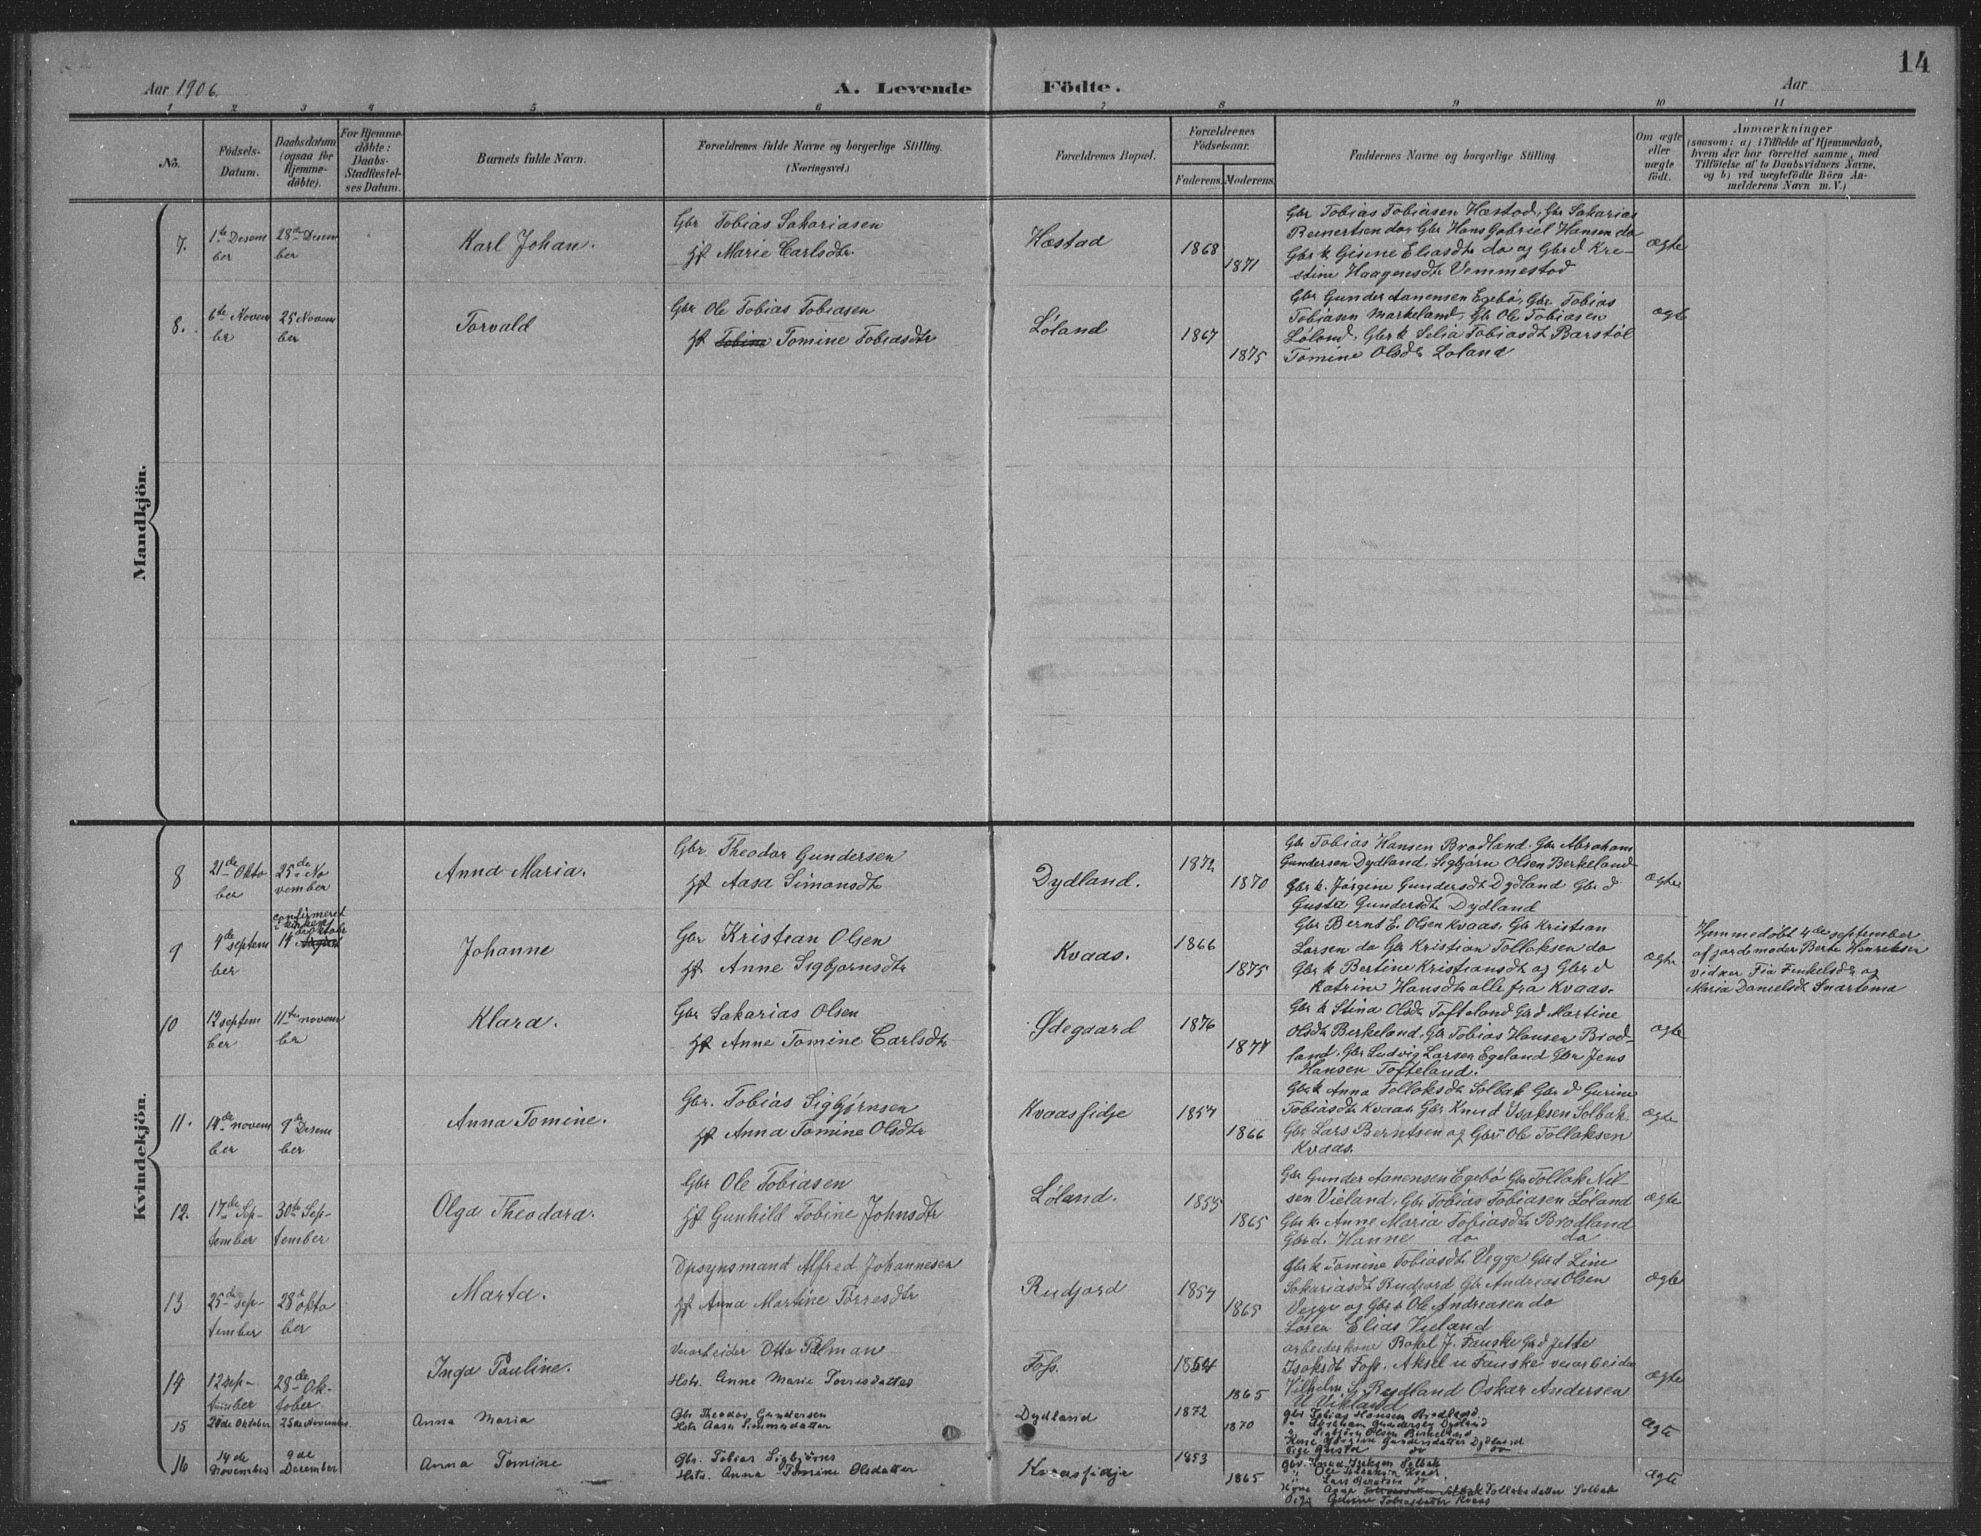 14
Aar 1906.
A. Levende Födte.
Aar
1 2 3 4 5 6 7 8 9 10 11
No.
Födsels-
Datum.
Daabsdatum
(ogsaa for
Hjemme-
döbte).
For Hjemme-
döbte:
Daabs-
Stadfæstel-
ses Datum.
Barnets fulde Navn.
Forældrenes fulde Navne og borgerlige Stilling.
(Næringsvei.)
Forældrenes Bopæl.
Forældrenes
Födselsaar.
Faderens. Moderens.
Faddernes Navne og borgerlige Stilling
Om ægte
eller
uægte
födt.
Anmærkninger
(saasom: a) i Tilfælde af Hjemmedaab,
hvem der har forrettet samme, med
Tilföielse af to Daabsvidners Navne,
og b) ved uægtefödte Börn An-
melderens Navn m. V.)
Mandkjön.
7.
1ste Desem
ber
28de Desem
ber
Karl Johan.
Gbr Tobias Sakariasen
hf Marie Carlsdtr.
Hæstad
1868
1871
Gbr Tobias Tobiasen Hæstad, Gbr Sakarias
Beinertsen do, Gbr Hans Gabriel Hansen do
Gbr k Gisine Eliasdt do og Gbr d Kre-
stine Haagensdt Vemmestad
ægte
8.
6te Novem
ber
25 Novem
ber
Torvald
Gbr Ole Tobias Tobiasen
hf Tobine Tomine Tobiasdtr
Løland
1867
1875
Gbr Gunder Aanensen Egebø, Gbr Tobias
Tobiasen Markeland, Gbr Ole Tobiasen
Løland, Gbr k Selia Tobiasdt Barstøl
Tomine Olsdtr Løland
ægte
Kvindekjön.
8
21de Okto
ber
25de No
vember
Anna Maria.
Gbr. Theodor Gundersen
hf Aasa Simonsdtr
Dydland.
1872
1870
Gbr Tobias Hansen Brodland, Gbr Abraham
Gundersen Dydland, Sigbjørn Olsen Berkeland
Gbr k. Jørgine Gundersdt Dydland Gbr d
Gusta Gundersdt Dydland
ægte
9
4de septem
ber
confirmeret
i kirken
14 de oktober
Johanne
Gbr Kristian Olsen
hf Anne Sigbjornsdtr
Kvaas.
1866
1875
Gbr Bernt E. Olsen Kvaas, Gbr Kristian
Larsen do Gbr Kristian Tollaksen do
Gbr k Bertine Kristiansdt og Gbr d
Katrine Hansdtr alle fra Kvaas.
ægte
Hjemmedøbt 4de september
af jordemoder Berte Henriksen
vidner Tia Tenkelsdtr og
Maria Danielsdt Snartemo
10
12 septem
ber
11te novem
ber
Klara.
Gbr Sakarias Olsen
hf Anne Tomine Carlsdtr
Ødegaard
1876
1877
Gbr k Stina Olsdt Tofteland Gbr d Martine
Olsdt Berkeland, Gbr Tobias Hansen Brod-
land, Gbr Ludvig Larsen Egeland Gbr Jens
Hansen Tofteland.
ægte
11.
14de novem
ber
9de Desem
ber
Anna Tomine.
Gbr. Tobias Sigbjørnsen
hf Anna Tomine Olsdtr
Kvaasfidje
1854
1866
Gbr k Anna Tollaksdt Solbak Gbr d Gurine
Tobiasdt Kvaas Gbr Knud Isaksen Solbak
Gbr Lars Berntsen og Gbr Ole Tollaksen
Kvaas.
ægte
12.
17de Sep-
tember
30te Sep-
tember
Olga Theodora.
Gbr Ole Tobiasen
hf Gunhild Tobine Johnsdtr
Løland.
1855
1865
Gbr Gunder Aanensen Egebø Gbr Tollak Nil-
sen Vieland, Gbr Tobias Tobiasen Løland
Gbr k. Anne Maria Tobiasdt Brodland
Gbr d. Hanne do do
ægte
13
25de sep-
tember
28de okto
ber
Marta.
Opsynsmand Alfred Johannesen
hf Anna Martine Torresdtr
Rudjord
1854
1865
Gbr k Tomine Tobiasdt Vegge Gbr d Line
Sakariasdt Rudjord Gbr Andreas Olsen
Vegge og Gbr s Ole Andreasen do
Søren Elias Vieland
ægte
14
12 sep-
tember
28de Ok-
tober
Inga Pauline.
Veiarbeider Otto Palman
Hstr. Anne Marie Torrisdatter
Foss.
1864
1865
arbeiderkone Rakel J. Fauske Gbr d Jette
Isaksdt Foss, Aksel u Fauske veiarbeider
Vilhelm S. Rudland Oskar Andersen
U Vikland
ægte
15
21de Oktober
25de November
Anna Maria
Gbr Theodor Gundersen
Hstr Aasa Simonsdatter
Dydland
1872
1870
Gbr Tobias Hansen Brodland
" Abraham Gundersen Dydland
" Sigbjörn Olsen Birkeland
Kone Jörgine Gundersdatter Dydland
Pige Gusta do do
ægte
16
14 de
November
9 de
December
Anna Tomine
Gbr. Tobias Sigbjörns
Hstr. Anna Tomine Olsdatter
Kvaasfidje
1853
1865
Gbr. Knud Isaksen Solbak
" Ole Tollaksen Kvaas
" Lars Berntsen do
Kone Anna Tollaksdatter Solbak
Pige Gurine Tobiasdatter Kvaas
ægte